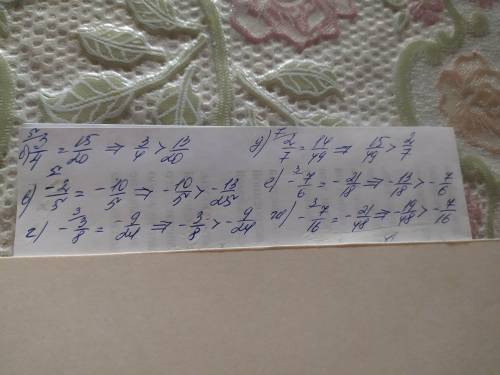 б) 5 3/4 = 15/20 ⇒ 3/4 > 13/20
в) 5 -2/5 = -10/5 ⇒ -10/5 > -13/25
г) 3 -3/8 = -9/24 ⇒ -3/8 > -9/24
д) 7 2/7 = 14/49 ⇒ 15/49 > 2/7
е) 3 -7/6 = -21/18 ⇒ -13/18 > -7/6
ж) 3 -7/16 = -21/48 ⇒ -19/48 > -7/16